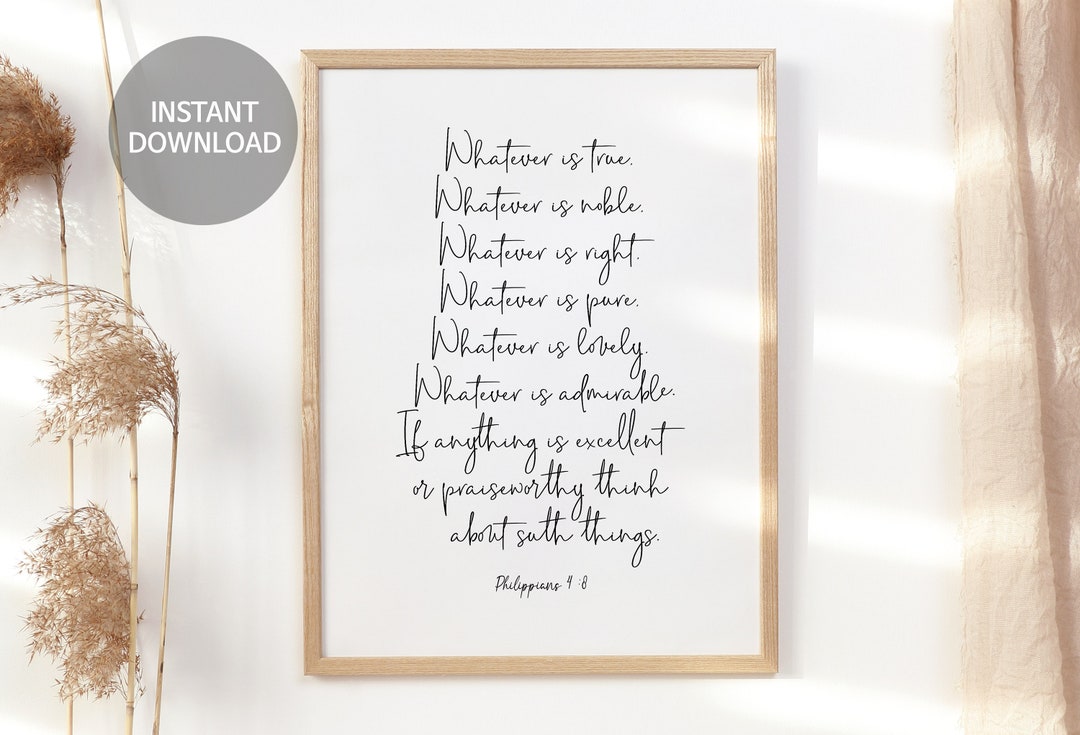 INSTANT
DOWNLOAD
Whatever is true.
Whatever is noble.
Whatever is right.
Whatever is pure.
Whatever is lovely.
Whatever is admirable.
If anything is excellent
or praiseworthy think
about suth things.
Philippians 4 :8